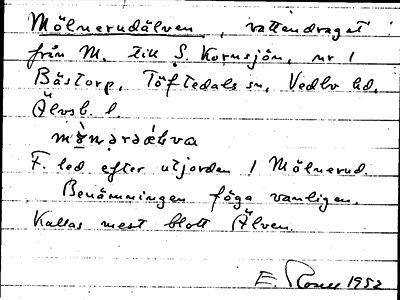 Mölnerudälven, vattendraget
från M. till S. Kornsjön, nr 1
Bästorp, Töftedals sn, Vedbo hd,
Älvsb. l.
F. led efter utjorden 1 Mölnerud.
Benämningen föga vanligen.
Kallas mest blott Älven.
E. 1952